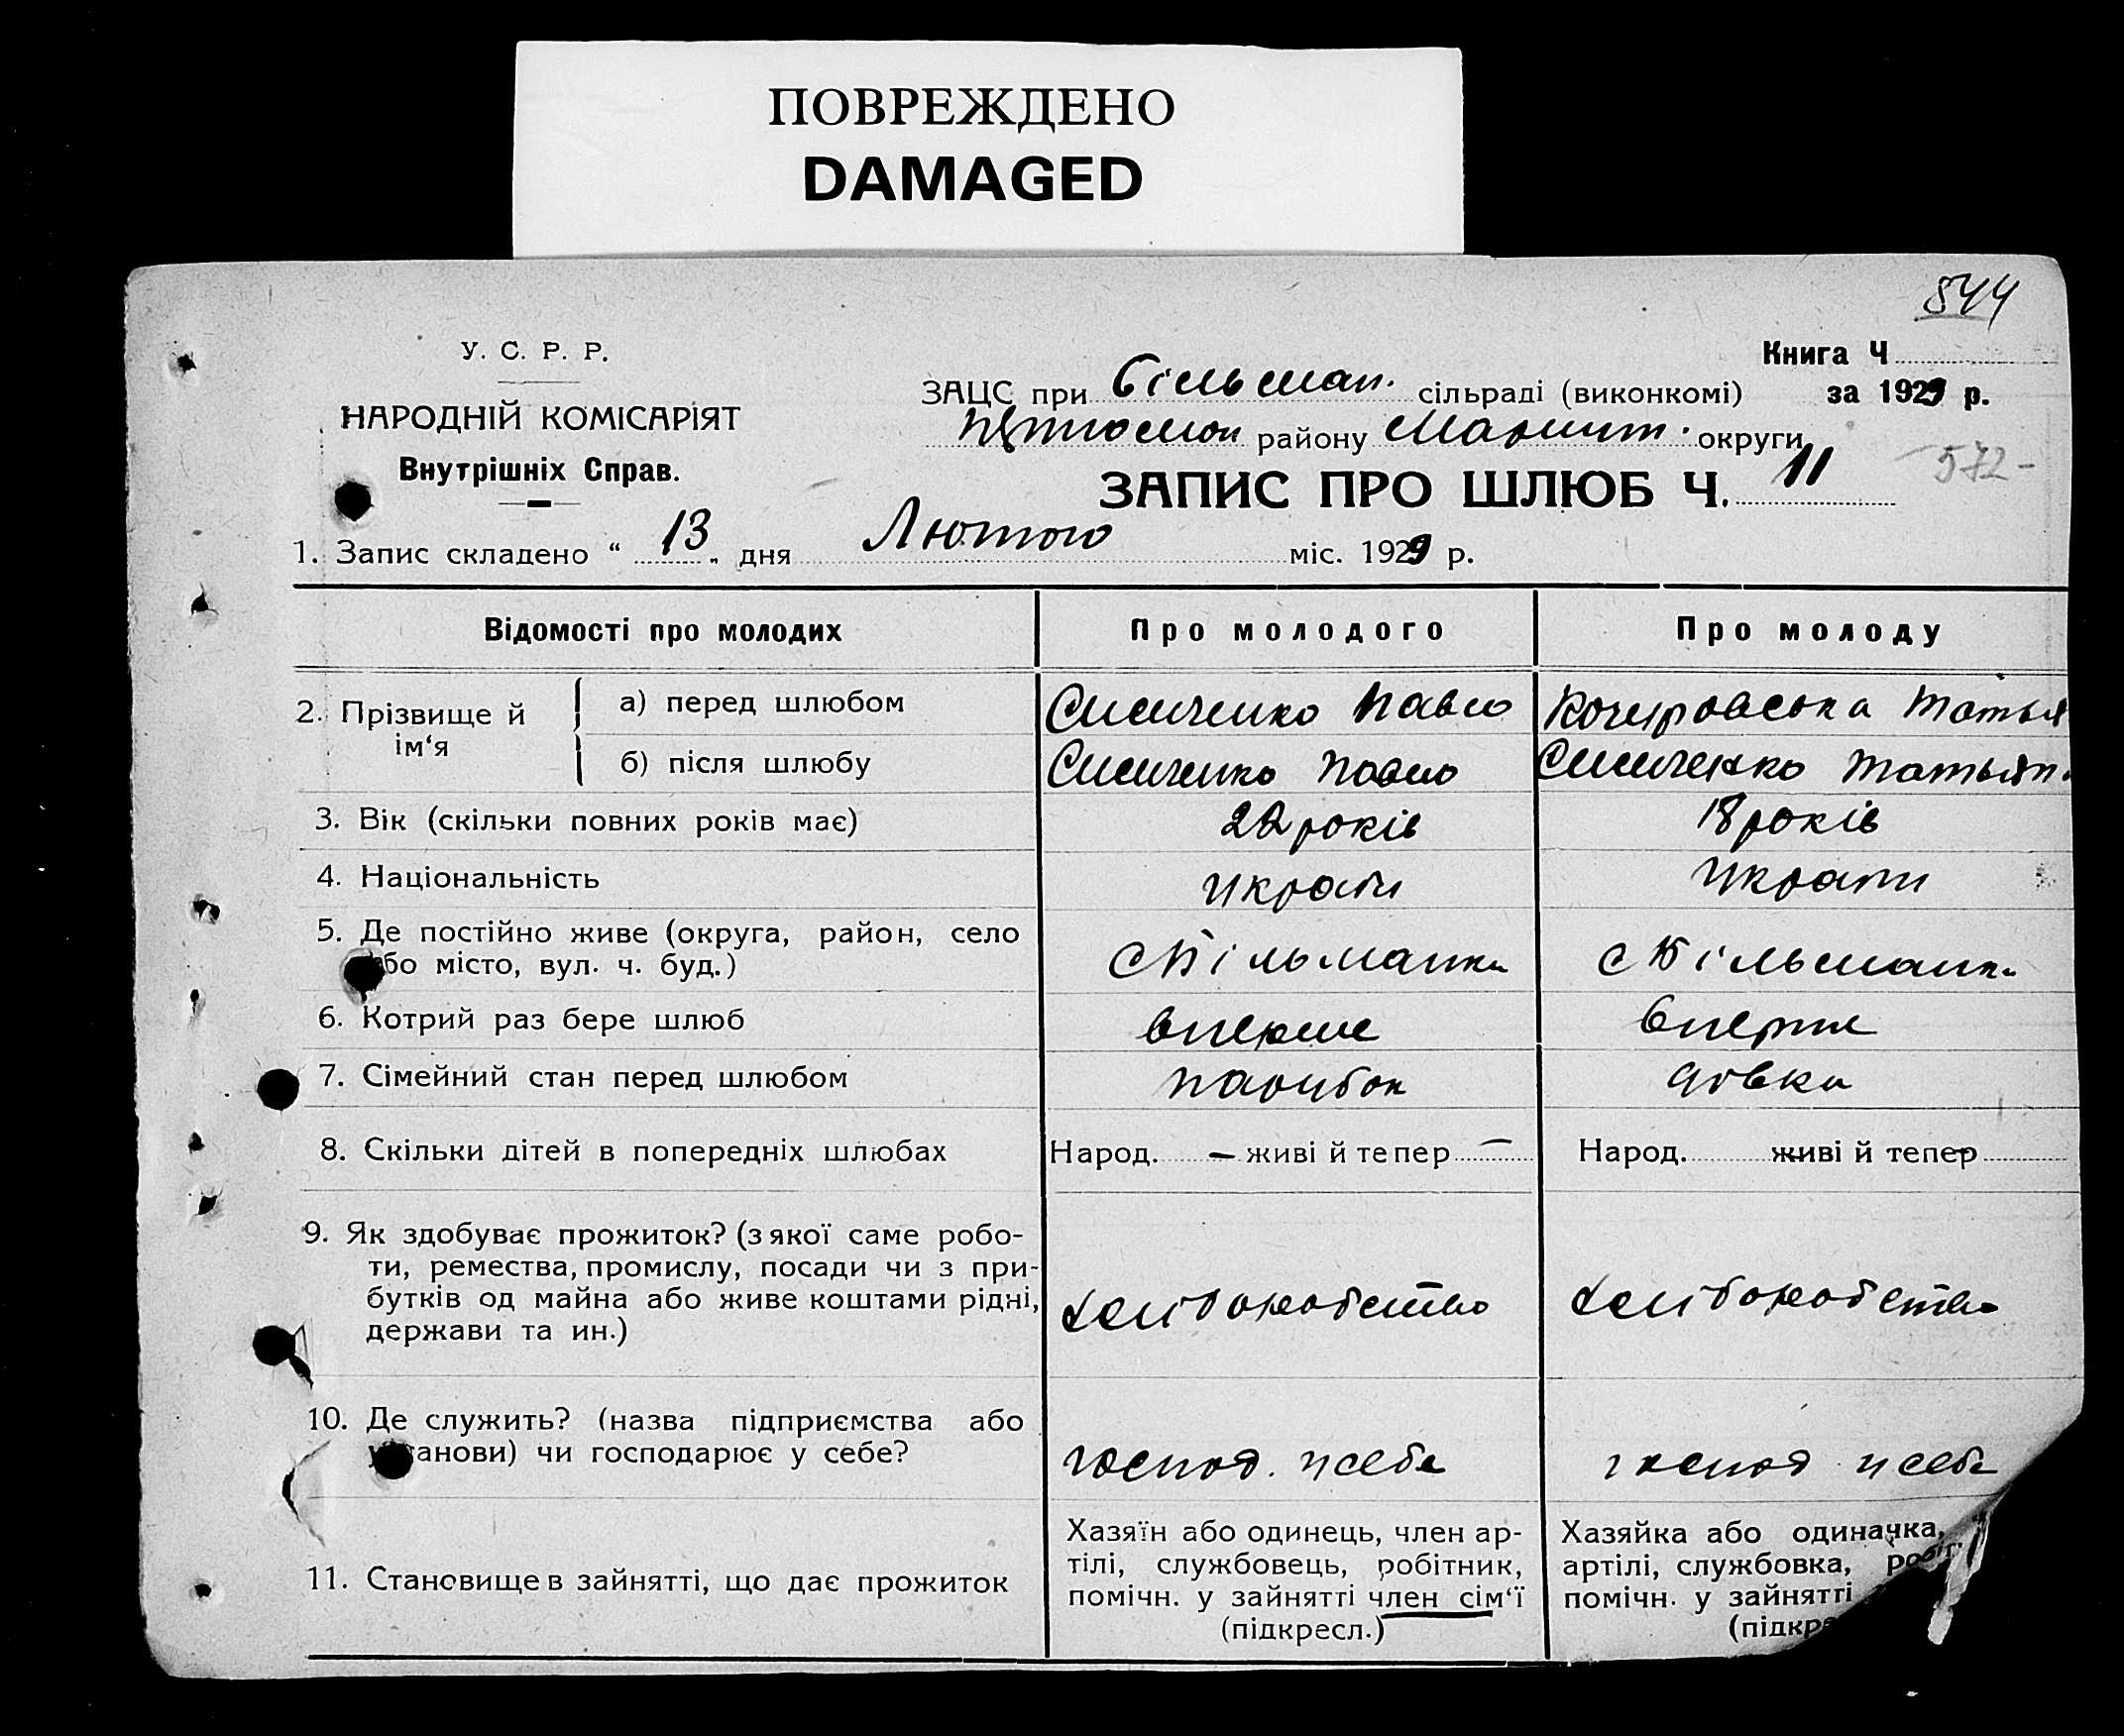 ПОВРЕЖДЕНО
DAMAGED
544
У. С. Р. Р.
НАРОДНІЙ КОМІСАРІЯТ
Внутрішніх Справ.
Книга Ч
ЗАЦС при Більман. сільраді (виконкомі) за 1929 р.
району Маріюп. округи
ЗАПИС ПРО ШЛЮБ Ч. 11
572-
1. Запис складено “ 13 „ дня Лютого міс. 1929 р.
Відомості про молодих Про молодого Про молоду
2. Прізвище й ім‘я
а) перед шлюбом Сисиченко Павло Татья
б) після шлюбу Сисиченко Павло Сисиченко Татьян.
3. Вік (скільки повних років має) 22 років 18 років
4. Національність Украін Украін
5. Де постійно живе (округа, район, село
бо місто, вул. ч. буд.) с Більманка с Більманка
6. Котрий раз бере шлюб вперше вперше
7. Сімейний стан перед шлюбом парубок дівка
8. Скільки дітей в попередніх шлюбах Народ. — живі й тепер — Народ. живі й тепер
9. Як здобуває прожиток? (з якої саме робо-
ти, ремества, промислу, посади чи з при-
бутків од майна або живе коштами рідні,
держави та ин.) хліборобство хліборобство
10. Де служить? (назва підприємства або
у анови) чи господарює у себе? господ. у себе господ у себе
11. Становище в зайнятті, що дає прожиток
Хазяїн або одинець, член ар-
тілі, службовець, робітник,
помічн. у зайнятті член сім‘ї
(підкресл.)
Хазяйка або одиначка,
артілі, службовка, робіт.
помічн. у зайнятті
(підкре